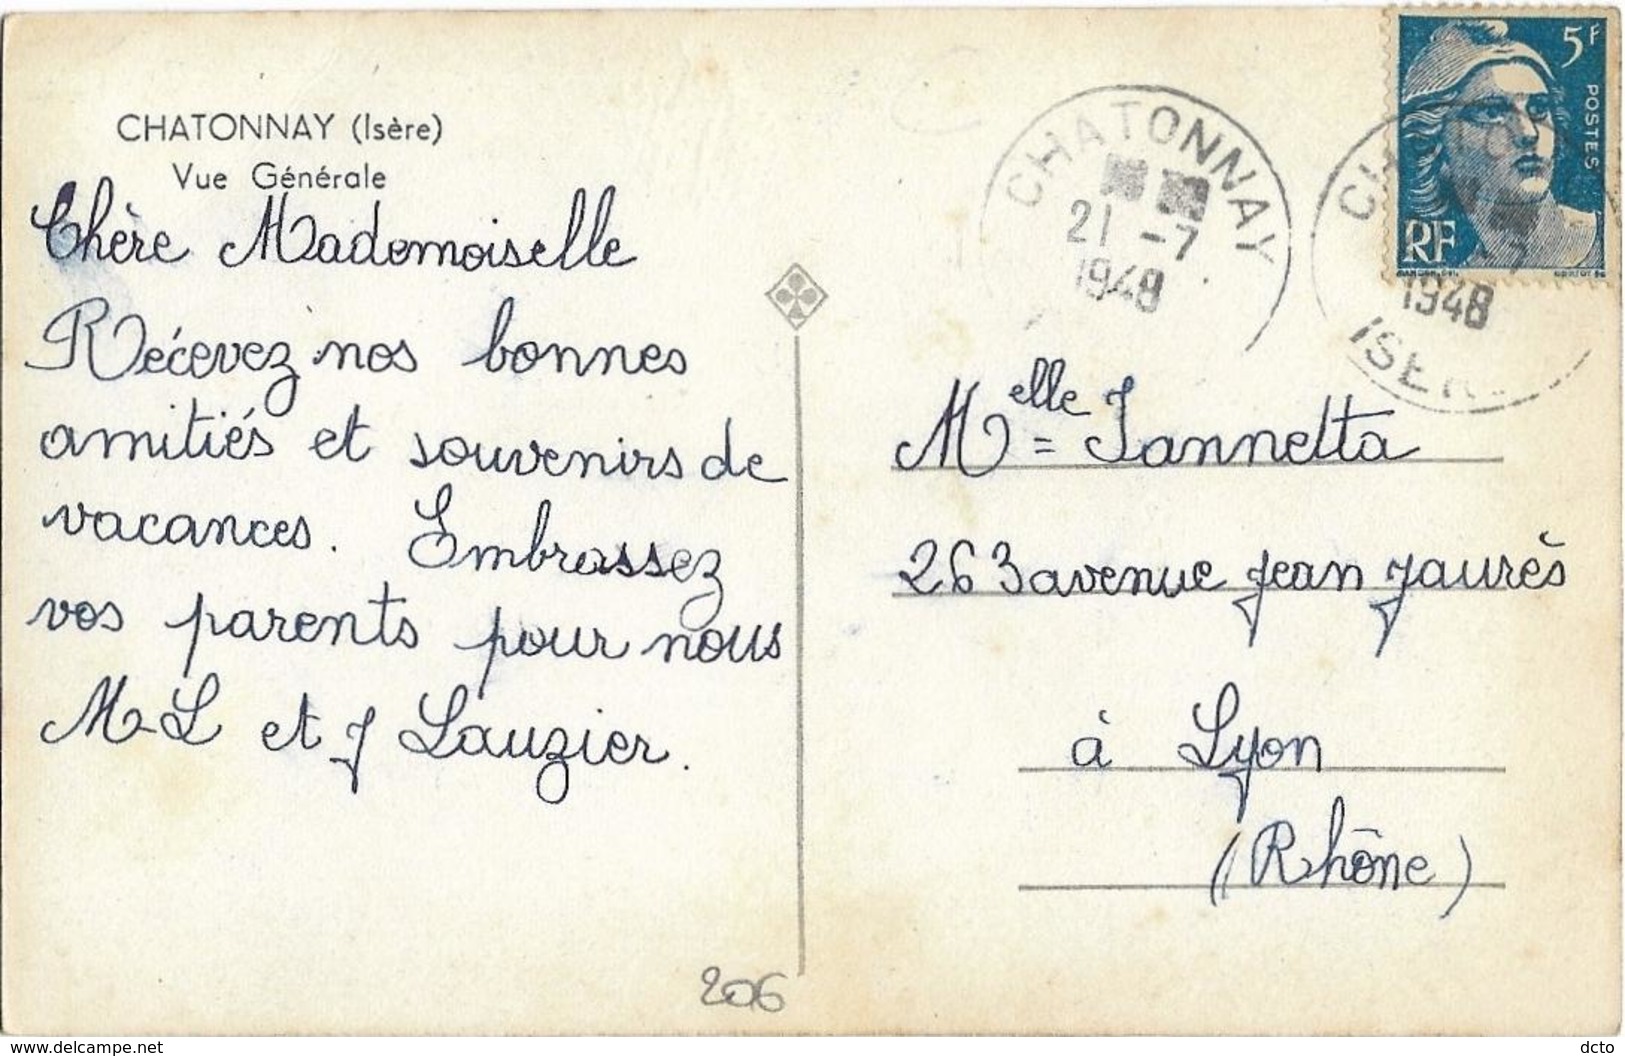 CHATONNAY (Isère)
Vue Générale
Chère Mademoiselle
Récevez nos bonnes
amitiés et souvenirs de
vacances. Embrassez
vos parents pour nous
M-L et J Lauzier.
206
CHATONNAY
21 -7
1948
1948
ISER
5F
POSTES
RF
Melle = Jannetta
263 avenue Jean Jaurès
à Lyon
(Rhône)
www.delcampe.net
dcto